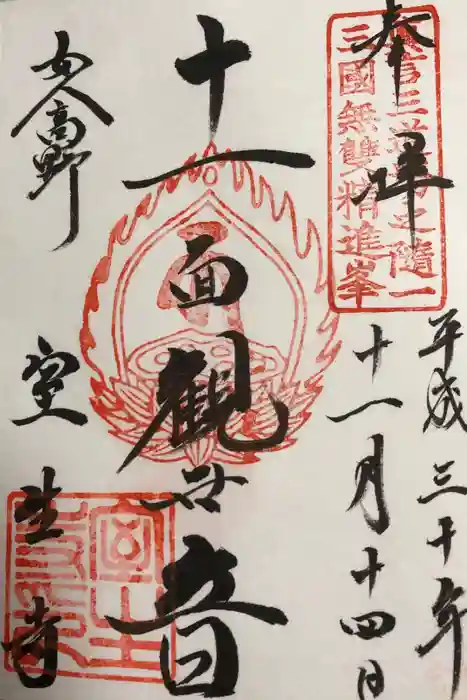 奉拝
三國無雙精進峯
平成三十年
十一月十四日
十一面観世音
女人高野
室生寺